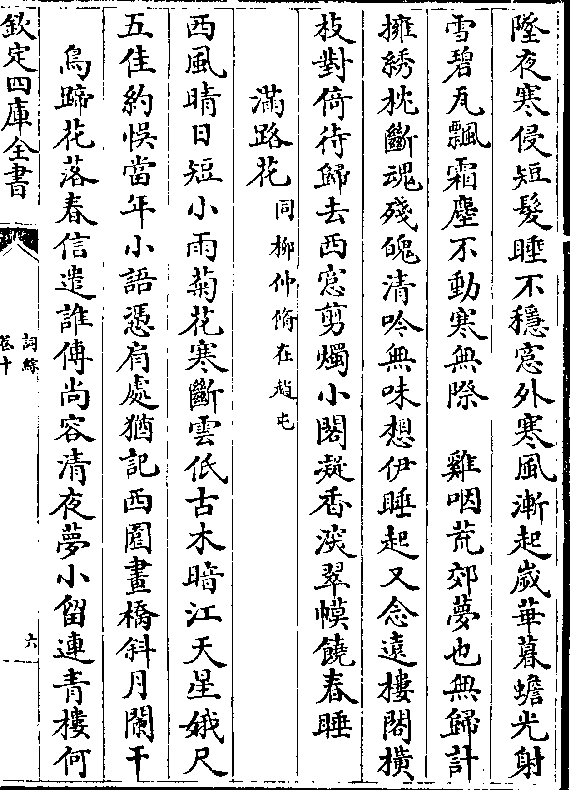 墮夜寒侵短髮睡不穩窓外寒風漸起歲華暮蟾光射
雪碧瓦飄霜塵不動寒無際　雞咽荒郊夢也無歸計
擁綉枕斷魂殘魄清吟無味想伊睡起又念遠樓閣橫
枝對倚待歸去西窓剪燭小閣凝香深翠幙饒春睡
滿路花同柳仲脩在趙屯
西風晴日短小雨菊花寒斷雲低古木暗江天星娥尺
五佳約悞當年小語憑肩處猶記西園畫橋斜月闌干
鳥啼花落春信遣誰傳尚容清夜夢小留連青樓何
欽定四庫全書
詞綜
卷十
六